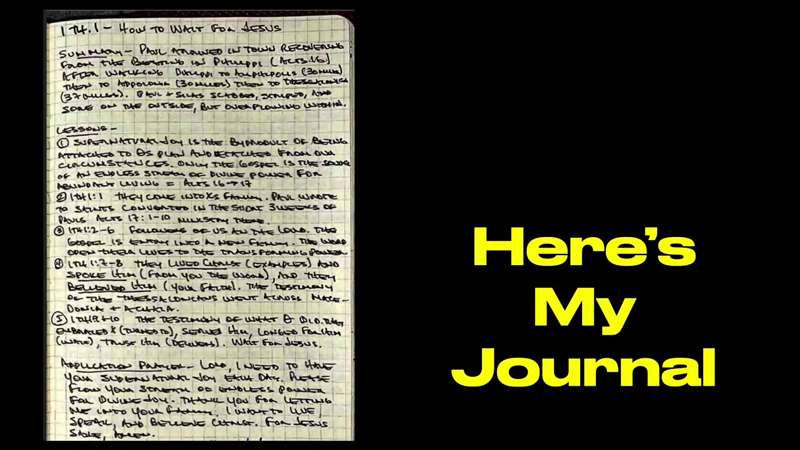 1 TH. 1 - HOW TO WAIT FOR JESUS
SUMMARY - PAUL ARRIVED IN TOWN RECOVERING
FROM THE BEATING IN PHILIPPI (ACTS 16)
AFTER WALKING PHILIPPI TO AMPHIPOLIS (30 MILES)
THEN TO APPOLONIA (30 MILES) THEN TO THESSALONICA
(37 MILES). PAUL + SILAS SCABBED, SCARED, AND
SORE ON THE OUTSIDE, BUT OVERFLOWING WITHIN.
LESSONS -
① SUPERNATURAL JOY IS THE BYPRODUCT OF BEING
ATTACHED TO GS PLAN AND DETACHED FROM OUR
CIRCUMSTANCES. ONLY THE GOSPEL IS THE SOURCE
OF AN ENDLESS STREAM OF DIVINE POWER FOR
ABUNDANT LIVING = ACTS 16-17
② 1TH1:1 THEY COME INTO FAMILY. PAUL WROTE
TO SAINTS CONVERTED IN THE SHORT 3 WEEKS OF
PAULS ACTS 17:1-10 MINISTRY THERE.
③ 1TH1:2-6 FOLLOWERS OF US AN THE LORD. THE
GOSPEL IS ENTRY INTO A NEW FAMILY. THE WORD
OPEN THEIR LIVES TO THE TRANSFORMING POWER
④ 1TH 1:7-8 THEY LIVED CHRIST (EXAMPLES) AND
SPOKE HIM (FROM YOU THE WORD), AND THEY
BELIEVED HIM (YOUR FAITH). THE TESTIMONY
OF THE THESSALONIANS WENT ACROSS MACE-
DONIA + ACHAIA.
⑤ THE TESTIMONY OF WHAT G DID. THEY
EMBRACED (TURNED TO), SERVED HIM, LONGED FOR HIM
(WAIT), TRUST HIM (DELIVERS). WAIT FOR JESUS.
APPLICATION PRAYER - LORD, I NEED TO HAVE
YOUR SUPERNATURAL JOY EACH DAY. PLEASE
FLOW YOUR STREAM OF ENDLESS POWER
FOR DIVINE JOY. THANK YOU FOR LETTING
ME INTO YOUR FAMILY. I WANT TO LIVE,
SPEAK, AND BELIEVE CHRIST. FOR JESUS
SAKE, AMEN.
Here's
My
Journal